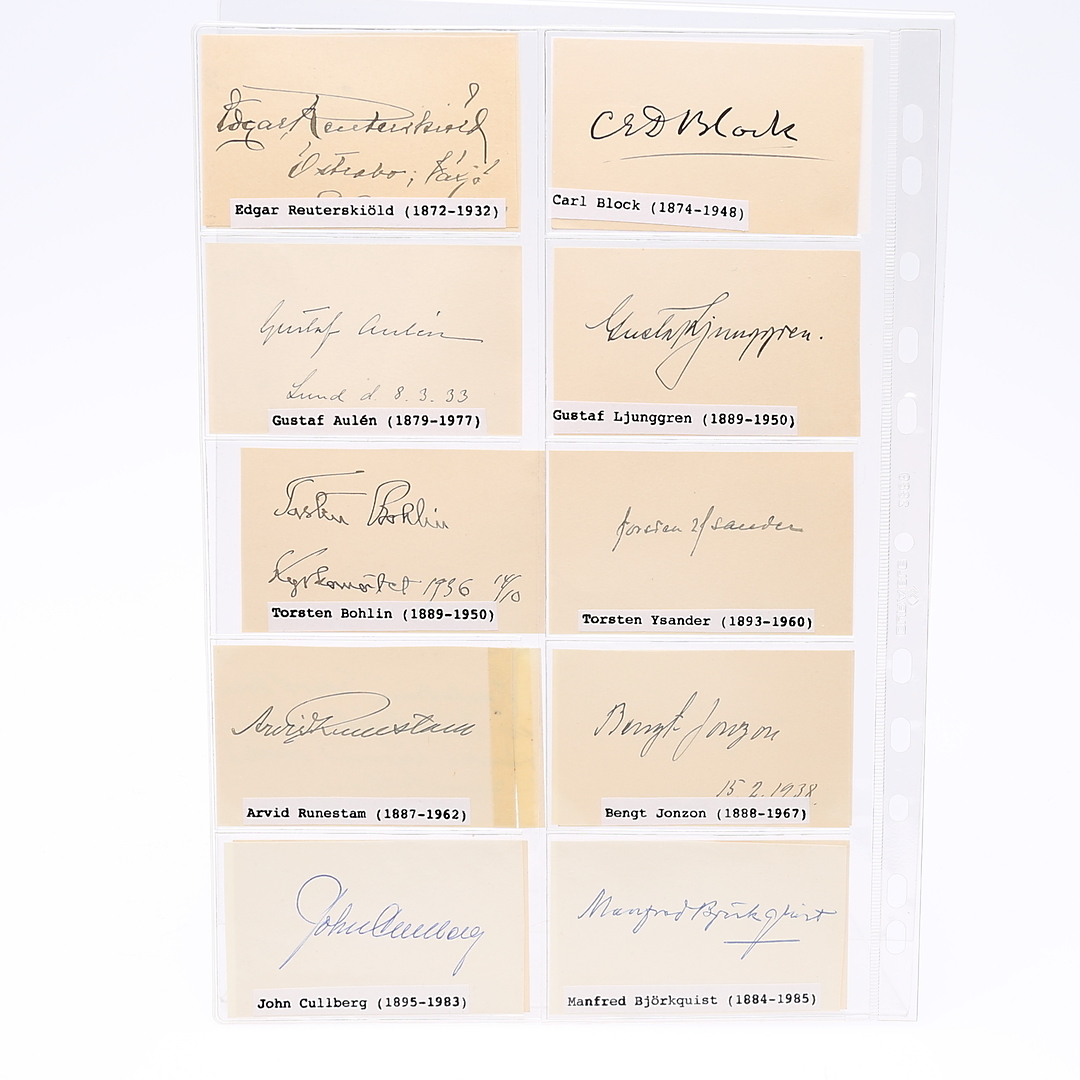 Edgar Reuterskiöld
Östrabo; Växjö
Edgar Reuterskiöld (1872-1932)
CED Block
Carl Block (1874-1948)
Gustaf Aulén
Lund d. 8.3.33
Gustaf Aulén (1879-1977)
Gustaf Ljunggren.
Gustaf Ljunggren (1889-1950)
Torsten Bohlin
Kyrkomötet 1936 14/10
Torsten Bohlin (1889-1950)
Torsten Ysander
Torsten Ysander (1893-1960)
Arvid Runestam
Arvid Runestam (1887-1962)
Bengt Jonzon
15 2.1938
Bengt Jonzon (1888-1967)
John Cullberg
John Cullberg (1895-1983)
Manfred Björkquist
Manfred Björkquist (1884-1985)